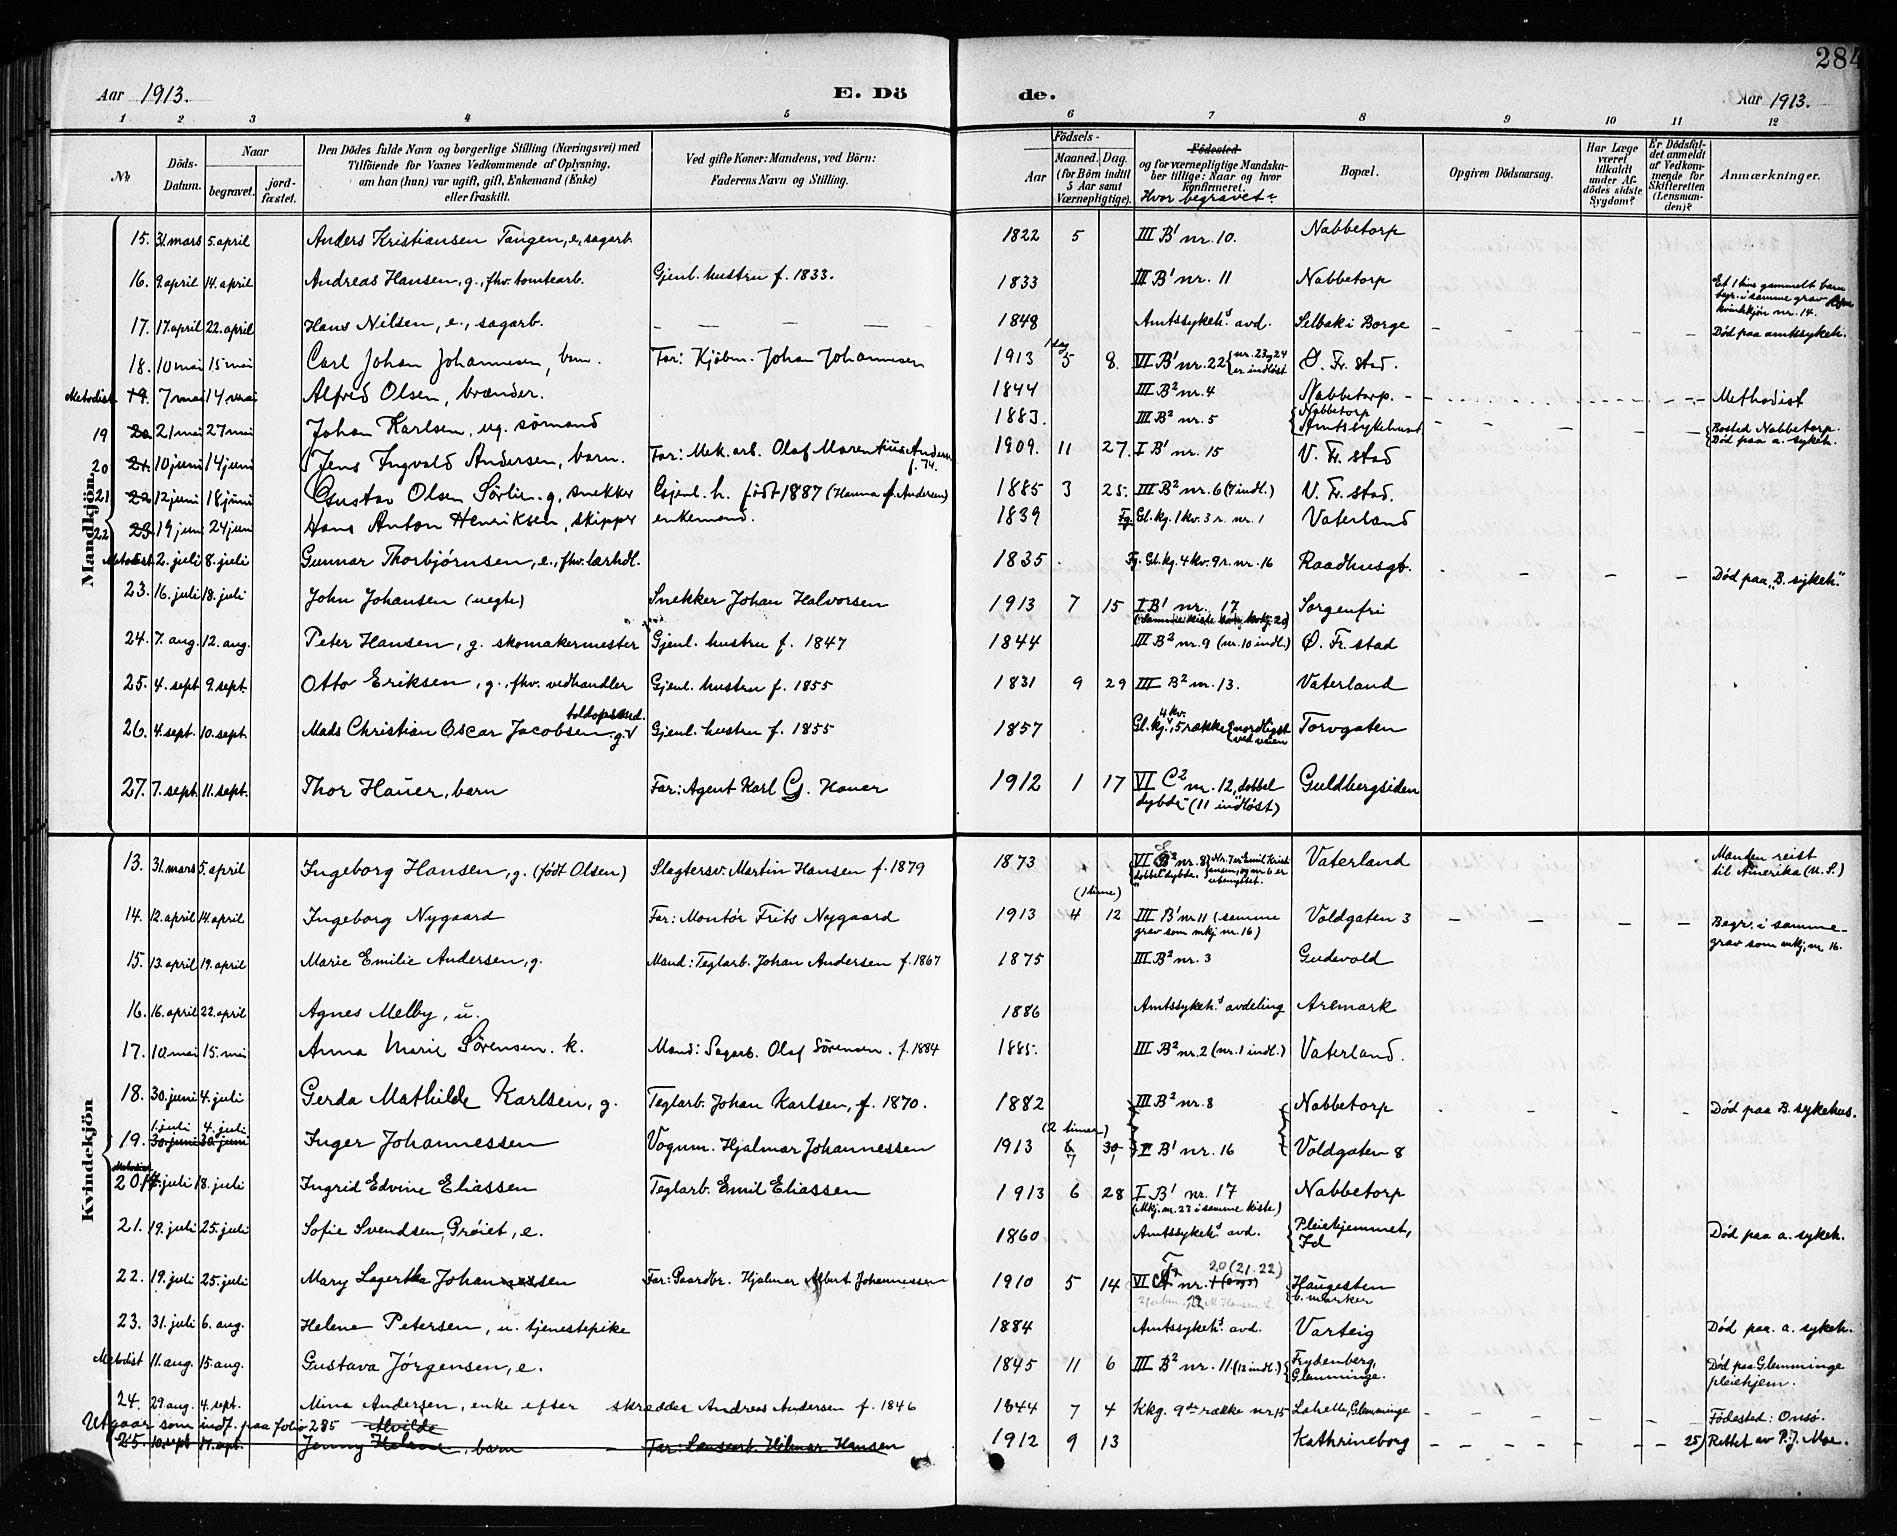 284
Aar 1913.
E. Dö
de.
Aar 1913.
1 2 3 4 5 6 7 8 9 10 11 12
No
Döds-Datum.
Naar
begravet.
jord-fæstet.
Den Dödes fulde Navn og borgerlige Stilling (Næringsvei) med
Tilföiende for Voxnes Vedkommende af Oplysning,
om han (hun) var ugift, gift, Enkemand (Enke)
eller fraskilt.
Ved gifte Koner: Mandens, ved Börn:
Faderens Navn og Stilling.
Födsels-
Aar
Maaned.
Dag.
(for Börn indtil
5 Aar samt
Værnepligtige).
Födested
og for værnepligtige Mandska-
ber tillige: Naar og hvor
konfirmeret.
Hvor begravet?
Bopæl.
Opgiven Dödsaarsag.
Har Læge
været
tilkaldt
under Af-
dödes sidste
Sygdom?
Er Dödsfal-
det anmeldt
af Vedkom-
mende for
Skifteretten
(Lensman-
den)?
Anmærkninger.
Mandkjön.
15. 31. mars 5. april Anders Kristiansen Tangen, e, sagarb. 1822 5 III B1 nr. 10. Nabbetorp
16. 9. april 14. april Andreas Hansen, g., fhv. tomtearb. Gjenl. hustru f. 1833. 1833 III B1 nr. 11 Nabbetorp Et 1 time gammelt barn
begr. i samme grav
kvindekjön nr. 14.
17. 17. april 22. april Hans Nilsen, e., sagarb. — — — — 1848 Amtssykehs avd. Selbak i Borge — — — Död paa amtssykeh.
18. 10 mai 15 mai Carl Johan Johannesen, barn. Far: Kjöbm. Johan Johannesen 1913 1 dag 5 8. VI B1 nr. 22 {nr. 23 og 24 er indlöst Ø. Fr. stad.
Metodist 19. 7 mai 14 mai Alfred Olsen, brænder. 1844 III B2 nr. 4 Nabbetorp. Methodist
19 20 21 mai 27 mai Johan Karlsen, ug. sömand 1883. III B2 nr. 5 {Nabbetorp
Amtssykehuset Bosted Nabbetorp.
Död paa a. sykeh.
20 21. 10 juni 14 juni Jens Ingvald Andersen, barn. Far: Mek. arb. Olaf Marentius Andersen f. 74. 1909. 11 27. I B1 nr. 15 V. Fr. stad
21 22 12 juni 18 juni Gustav Olsen Sörlie. g, snekker Gjenl. h. født 1887 (Hanna f. Andersen) 1885 3 25. III B2 nr. 6 (7 indl.) V. Fr. stad.
22 23 19 juni 24 juni Hans Anton Henriksen, skipper enkemand. 1839 Fg. Gl. kg. 1 kv. 3 r. nr. 1 Vaterland
Metodist 2. juli 8. juli Gunnar Thorbjørnsen, e., fhv. lærhdl. 1835. Fg. Gl. kg. 4 kv. 9 r. nr. 16 Raadhusgt. Död paa "B. sykeh."
23. 16. juli 18. juli John Johansen (uegte) Snekker Johan Halvorsen 1913 7 15 I B1 nr. 17
Sorgenfri
24. 7. aug. 12. aug. Peter Hansen, g. skomakermester Gjenl. hustru f. 1847 1844 III B2 nr. 9 (nr. 10 indl.) Ø. Fr. stad
25. 4. sept. 9. sept. Otto Eriksen, g., fhv. vedhandler Gjenl. hustru f. 1855 1831 9 29 III B2 nr. 13. Vaterland
26. 4. sept. 10. sept. Mads Christian Oscar Jacobsen, g. Gjenl. hustru f. 1855 1857 Gl. kg. 4 kv. 5 række {nordligst
ved veien Torvgaten
27. 7. sept. 11. sept. Thor Hauer, barn Far: Agent Karl G. Hauer 1912 1 17 VI C2 nr. 12, dobbel
dybde (11 indlöst) Guldbergsiden
Kvindekjön
13. 31. mars 5. april Ingeborg Hansen, g. (født Olsen) Slagtersv. Martin Hansen f. 1879 1873 VI B2 nr. 8
dobbel dybde. Vaterland Manden reist
til Amerika (U. S.)
14. 12. april 14. april Ingeborg Nygaard Far: Montør Frits Nygaard 1913 (1 time) 4 12 III B1 nr 11 (samme
grav som mkj nr. 16) Voldgaten 3 — — — — Begr. i samme
grav som mkj. nr. 16.
15. 13. april 19. april Marie Emilie Andersen, g. Mand: Teglarb. Johan Andersen f. 1867 1875 III B2 nr. 3 Gudevold
16. 16. april 22. april Agnes Melby, u. 1886 Amtssykehs avdeling Aremark
17. 10. mai 15. mai Anna Marie Sörensen. k. Mand: Sagarb. Olaf Sörensen. f. 1884 1885. III B2 nr. 2 (nr. 1 indl.) Vaterland.
18. 30. juni 4. juli Gerda Mathilde Karlsen, g. Teglarb. Johan Karlsen, f. 1870. 1882 III B2 nr. 8 Nabbetorp Död paa B. sykehus.
19. 1. juli 4. juli 30. juni 30. juni Inger Johannessen Vognm. Hjalmar Johannessen 1913 (2 timer) 6 7 30 1 I B1 nr. 16 Voldgaten 8
Metodist
20 juli 18. juli Ingrid Edvine Eliassen Teglarb. Emil Eliassen 1913 6 28 I B1 nr. 17
(Mkj. nr. 23 i samme kiste) Nabbetorp
21. 19. juli 25. juli Sofie Svendsen, Prøiet, e. 1860 Amtssykehs avd. {Pleiehjemmet,
Id Död paa a. sykeh.
22. 19. juli 25. juli Mary Lagertha Johannessen Far: Gaardbr. Hjalmar Albert Johannessen 1910 5 14 VI nr. 20 (21. 22) Haugesten
b. marker
23. 31. juli 6. aug. Helene Petersen, u. tjenestepike 1884 Amtssykehs avd. Varteig Död paa a. sykeh.
Metodist 11. aug. 15. aug. Gustava Jörgensen, e. 1845 11 6 III B2 nr. 11 (12 indl.) {Frydenberg,
Glemminge. Död paa Glemminge
pleiehjem.
24. 29. aug. 4. sept. Mina Andersen, enke efter skrædder Andreas Andersen f. 1846 1844 7 4 Kkg. 9de række nr 15 Lahelle, Glemminge — — — Födested: Onsö.
Utgaar som indf. paa folio 285 Alvilde
25. 10. sept. 17. sept. Jenny Helene, barn — Far: Hilmar Hansen 1912 9 13 Kathrineborg — — — 25) Rettet av P. J. Moe.